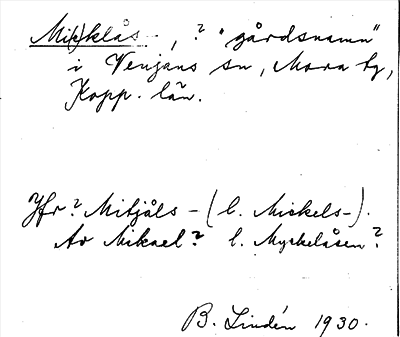 Mi(k)klås -, ? "gårdsnamn"
i Venjans sn, Mora tg,
Kopp. län.
Jfr? Mitjåls - (l. Mickels-).
Av Mikael? l. Myckelåsen?
B. Lindén 1930.